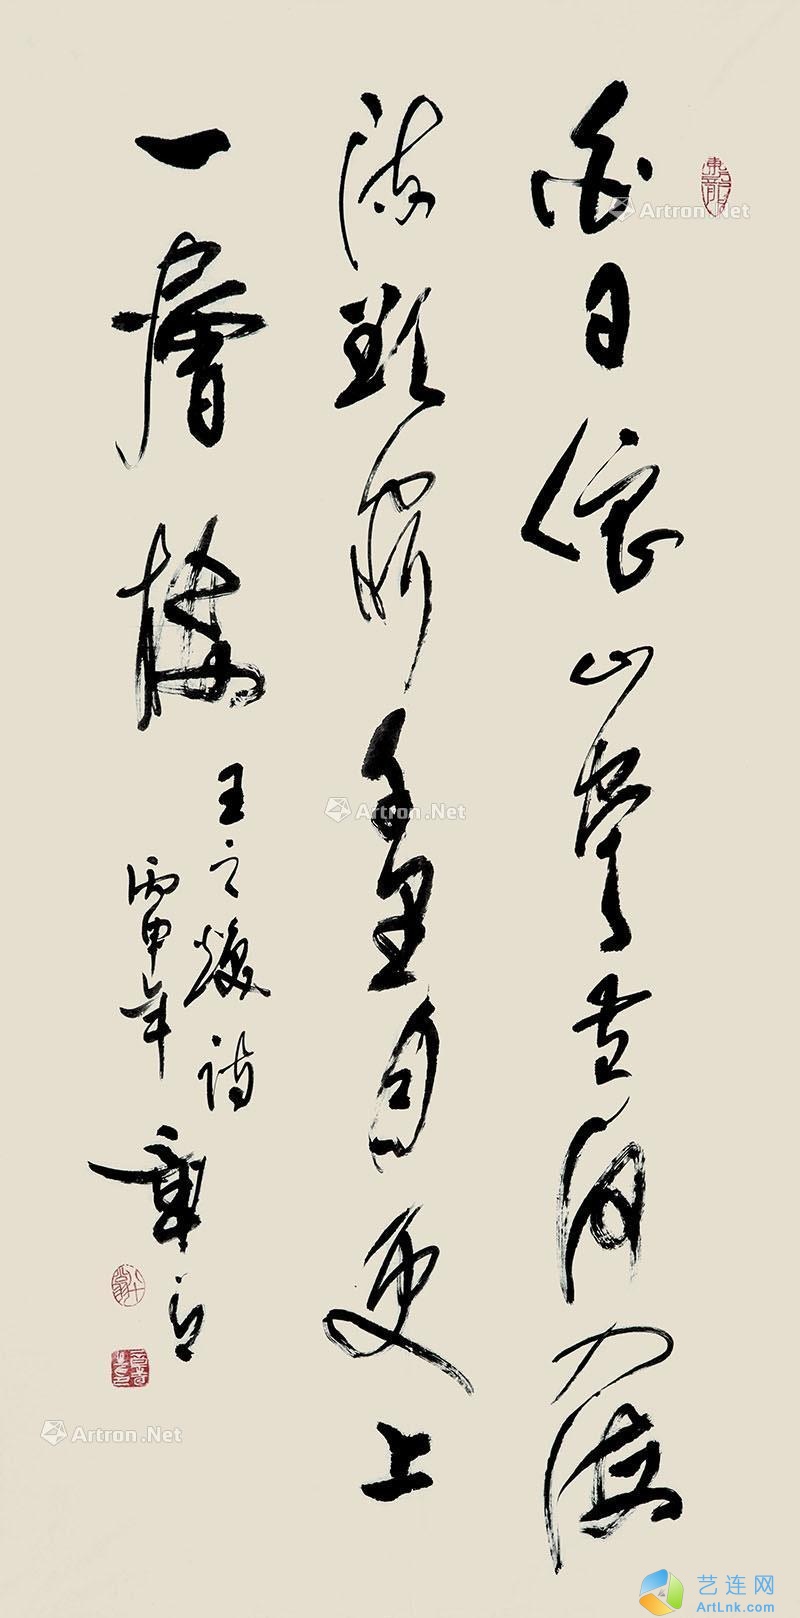 白日依山盡黄河入海
流欲窮千里目更上
一層樓
王之煥詩
丙申年
Artron.Net
Artron.Net
Artron.Net
艺连网
ArtLnk.com